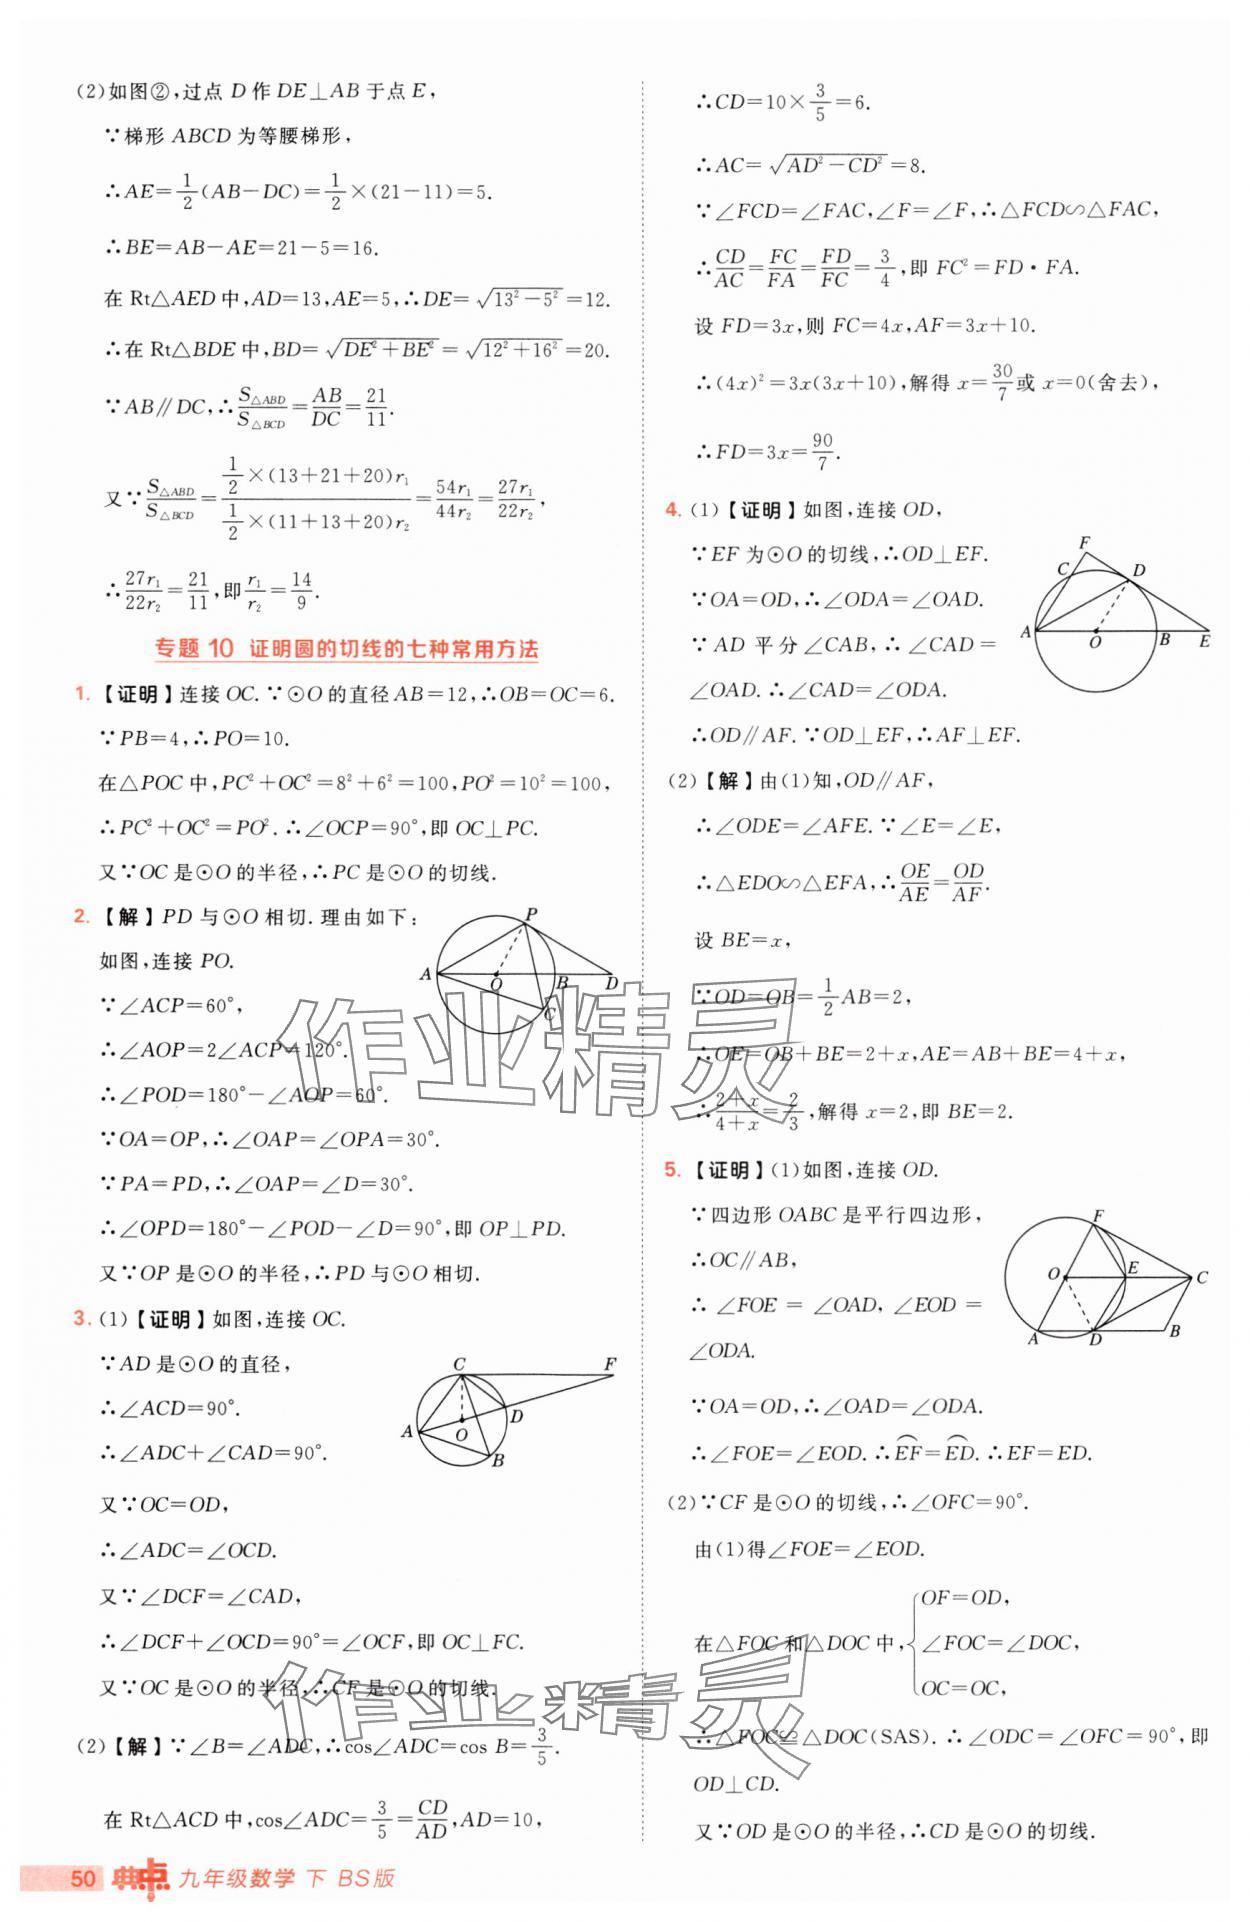 (2)如图②,过点 D 作 DE⊥AB 于点 E,
∵梯形 ABCD 为等腰梯形,
∴AE=1/2(AB-DC)=1/2×(21-11)=5.
∴BE=AB-AE=21-5=16.
在 Rt△AED 中,AD=13,AE=5,∴DE=√(13²-5²)=12.
∴在 Rt△BDE 中,BD=√(DE²+BE²)=√(12²+16²)=20.
∵AB∥DC,∴S△ABD/S△BCD=AB/DC=21/11.
又∵S△ABD/S△BCD=(1/2×(13+21+20)r₁)/(1/2×(11+13+20)r₂)=54r₁/44r₂=27r₁/22r₂,
∴27r₁/22r₂=21/11,即r₁/r₂=14/9.
专题 10 证明圆的切线的七种常用方法
1.【证明】连接 OC.∵⊙O 的直径 AB=12,∴OB=OC=6.
∵PB=4,∴PO=10.
在△POC 中,PC²+OC²=8²+6²=100,PO²=10²=100,
∴PC²+OC²=PO².∴∠OCP=90°,即 OC⊥PC.
又∵OC 是⊙O 的半径,∴PC 是⊙O 的切线.
2.【解】PD 与⊙O 相切.理由如下:
如图,连接 PO.
∵∠ACP=60°,
∴∠AOP=2∠ACP=120°.
∴∠POD=180°-∠AOP=60°.
∵OA=OP,∴∠OAP=∠OPA=30°.
∵PA=PD,∴∠OAP=∠D=30°.
∴∠OPD=180°-∠POD-∠D=90°,即 OP⊥PD.
又∵OP 是⊙O 的半径,∴PD 与⊙O 相切.
P
A
O
B
D
C
3.(1)【证明】如图,连接 OC.
∵AD 是⊙O 的直径,
∴∠ACD=90°.
∴∠ADC+∠CAD=90°.
又∵OC=OD,
∴∠ADC=∠OCD.
又∵∠DCF=∠CAD,
∴∠DCF+∠OCD=90°=∠OCF,即 OC⊥FC.
又∵OC 是⊙O 的半径,∴CF 是⊙O 的切线.
C
F
A
O
D
B
(2)【解】∵∠B=∠ADC,∴cos∠ADC=cos B=3/5.
在 Rt△ACD 中,cos∠ADC=3/5=CD/AD,AD=10,
∴CD=10×3/5=6.
∴AC=√(AD²-CD²)=8.
∵∠FCD=∠FAC,∠F=∠F,∴△FCD∽△FAC,
∴CD/AC=FC/FA=FD/FC=3/4,即 FC²=FD·FA.
设 FD=3x,则 FC=4x,AF=3x+10.
∴(4x)²=3x(3x+10),解得 x=30/7或 x=0(舍去),
∴FD=3x=90/7.
4.(1)【证明】如图,连接 OD,
∵EF 为⊙O 的切线,∴OD⊥EF.
∵OA=OD,∴∠ODA=∠OAD.
∵AD 平分∠CAB,∴∠CAD=
∠OAD.∴∠CAD=∠ODA.
∴OD∥AF.∵OD⊥EF,∴AF⊥EF.
F
C
D
A
O
B
E
(2)【解】由(1)知,OD∥AF,
∴∠ODE=∠AFE.∵∠E=∠E,
∴△EDO∽△EFA,∴OE/AE=OD/AF.
设 BE=x,
∵OD=OB=1/2AB=2,
∴OE=OB+BE=2+x,AE=AB+BE=4+x,
∴(2+x)/(4+x)=2/3,解得 x=2,即 BE=2.
5.【证明】(1)如图,连接 OD.
∵四边形 OABC 是平行四边形,
∴OC∥AB,
∴∠FOE=∠OAD,∠EOD=
∠ODA.
∵OA=OD,∴∠OAD=∠ODA.
∴∠FOE=∠EOD.∴⌒EF=⌒ED.∴EF=ED.
F
O
E
C
A
D
B
(2)∵CF 是⊙O 的切线,∴∠OFC=90°.
由(1)得∠FOE=∠EOD.
在△FOC 和△DOC 中,{OF=OD,
∠FOC=∠DOC,
OC=OC,
∴△FOC≌△DOC(SAS).∴∠ODC=∠OFC=90°,即
OD⊥CD.
又∵OD 是⊙O 的半径,∴CD 是⊙O 的切线.
作业精灵
作业精灵
50 典点 九年级数学 下 BS版